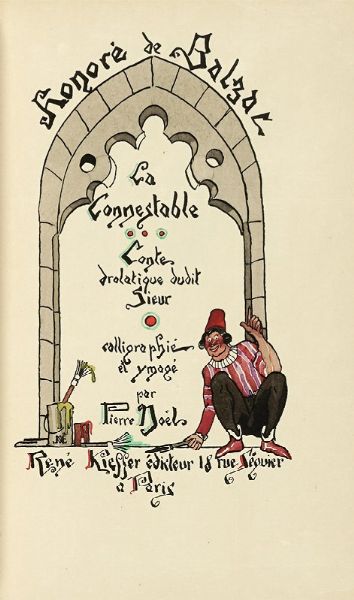 Honoré de Balzac
La
Connestable
Conte
drolatique dudit
Sieur
calligraphié
et ymagé
par
Pierre Noël
René Kieffer éditeur 18 rue Séguier
à Paris